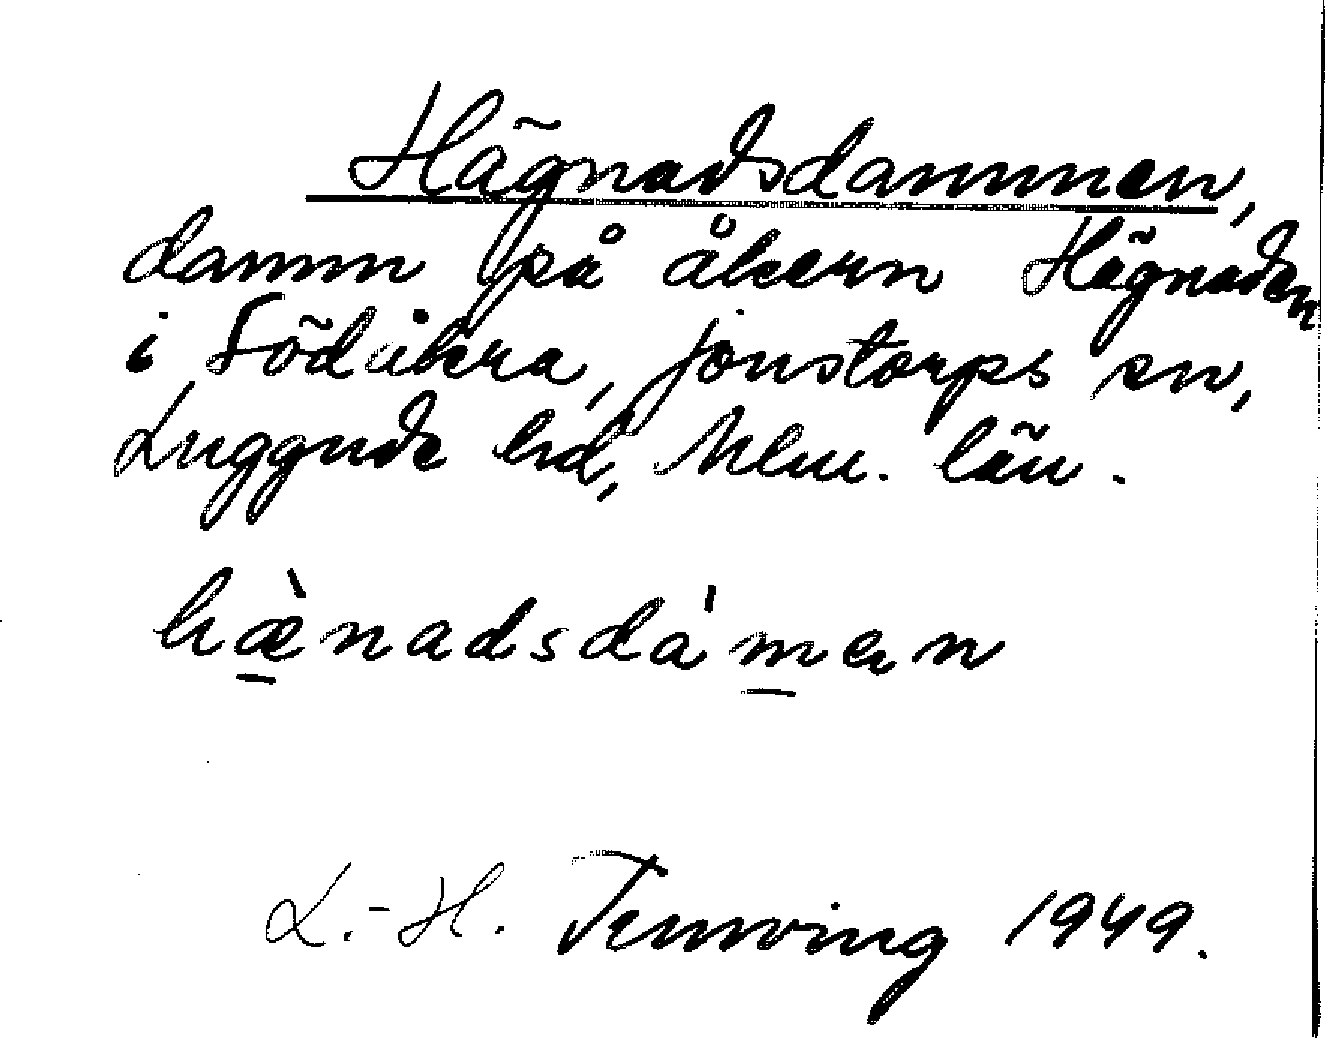 Hägnadsdammen,
damm på åkern Hägnaden
i Södåkra, Jonstorps sn,
Luggude hd, Mlm. län.
hæ̀nadsda'men
L.-H. 1949.